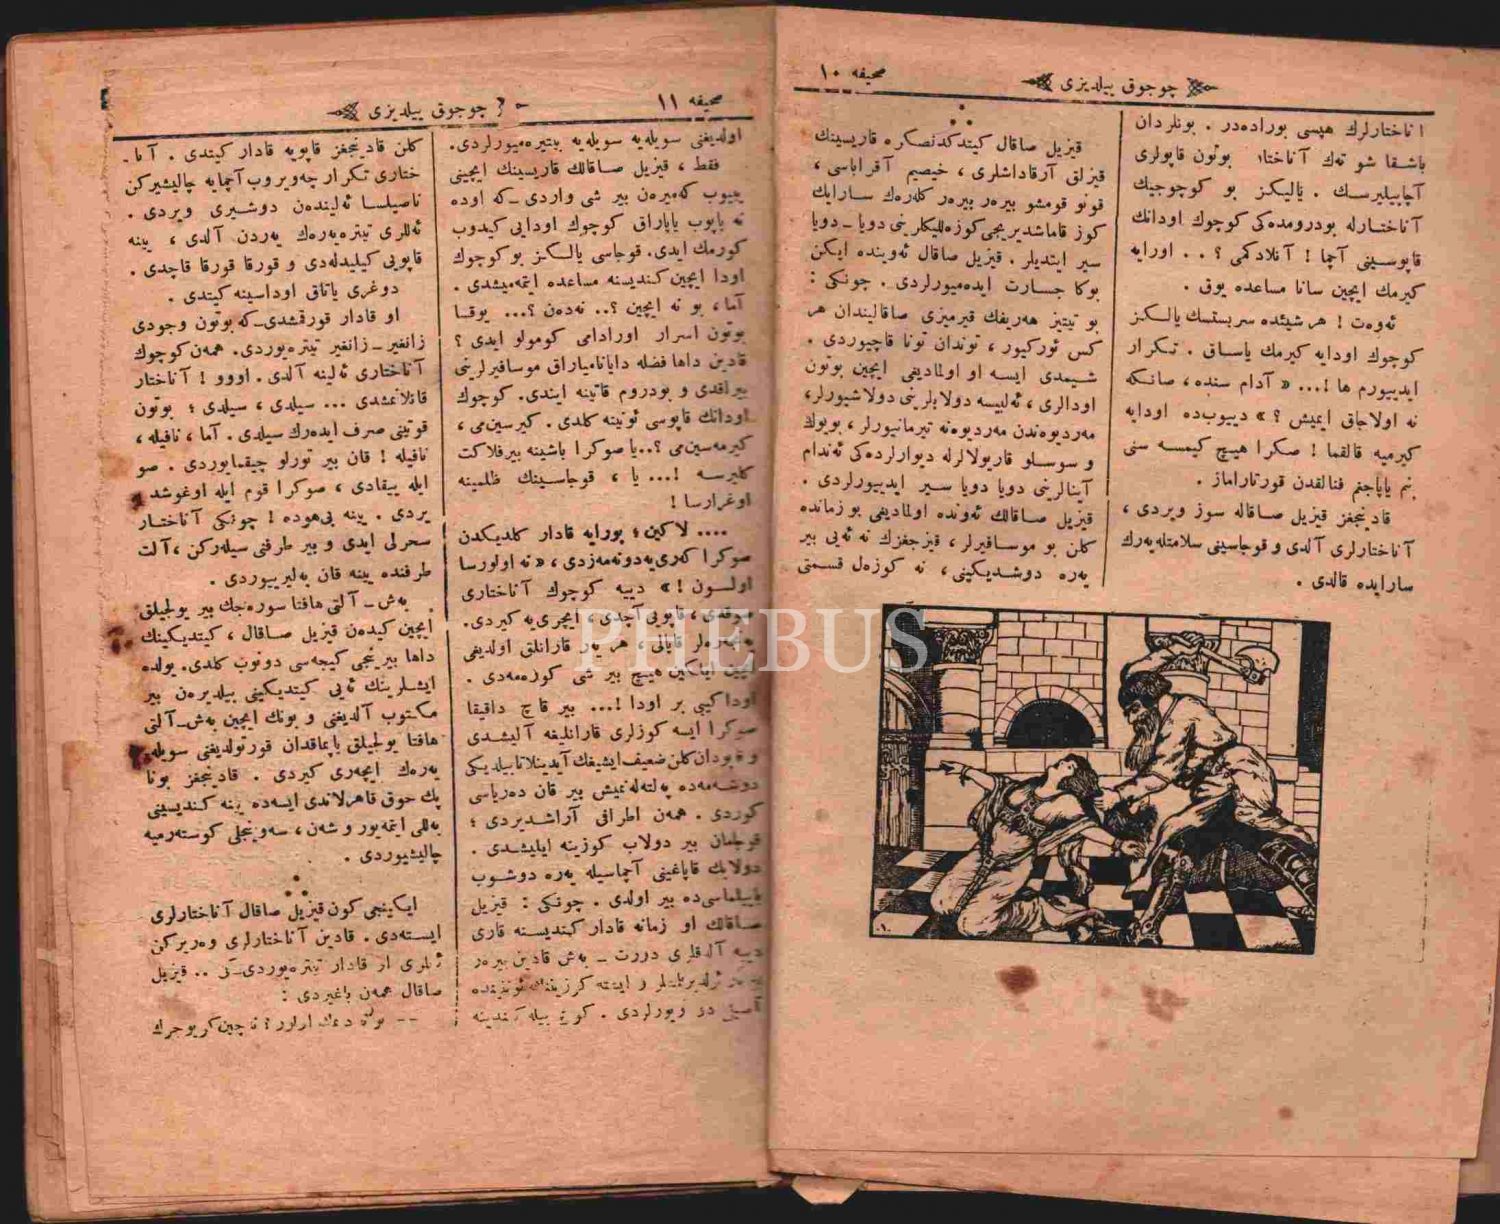 صحیفه ١٠
چوجوق ییلدیزی
آناختارلرك هپسی بوراده‌در . بونلردان
باشقا شو تەك آناختار؛ بوتون قاپولری
آچابیلیرسك . یالیكز بو كوچوجیك
آناختارله بودرومده‌كی كوچوك اودانك
قاپوسینی آچما ! آكلادكمی ؟ . . اورایه
كیرمك ایچین سانا مساعده یوق .
ئەوەت ! هر شیئده سربستسك یالكز
كوچوك اودایه كیرمك یاساق . تكرار
ایدییورم ها !... « آدام سنده ، سانكه
نه اولاجاق ایمیش ؟ » دییوب‌ده اودایه
كیرمیه قالقما ! صكرا هیچ كیمسه سنی
بنم یاپاجغم فنالقدن قورتاراماز .
قادینجغز قیزیل صاقاله سوز ویردی ،
آناختارلری آلدی و قوجاسینی سلامتله‌یەرك
سارایده قالدی .
قیزیل صاقال كیتدكدنصكره قاریسینك
قیزلق آرقاداشلری ، خیصیم آقراباسی ،
قونو قومشو بیرەر بیرەر كلەرەك سارایك
كوز قاماشدیریجی كوزەللیكلرینی دویا ــ دویا
سیر ایتدیلر . قیزیل صاقال ئەوینده ایكن
بوكا جسارت ایده‌میورلردی . چونكی :
بو تیتیز هەریفك قیرمیزی صاقالیندان هر
كس ئوركیور ، توندان تونا قاچیوردی .
شیمدی ایسه او اولمادیغی ایچین بوتون
اودالری ، ئەلبیسه دولابلرینی دولاشیورلر ،
مەردیوەندن مەردیوەنه تیرمانیورلر ، بویوك
و سوسلو قاریولالرله دیوارلرده‌كی ئەندام
آینالرینی دویا دویا سیر ایدییورلردی .
قیزیل صاقالك ئەونده اولمادیغی بو زمانده
كلن بو موسافیرلر ، قیزجغزك نه ئەیی بیر
یەره دوشدیكینی ، نه كوزەل قسمتی
صحیفه ١١
چوجوق ییلدیزی
اولدیغنی سویلەیه سویلەیه بیتیره‌میورلردی.
فقط ، قیزیل صاقالك قاریسینك ایچینی
ییوب كەمیرەن بیر شی واردی ــ كه اوده
نه یاپوب یاپاراق كوچوك اودایی كیدوب
كورمك ایدی. قوجاسی یالكز بو كوچوك
اودا ایچین كندیسنه مساعده ایتمه‌میشدی .
آما ، بو نه ایچین ؟.. نەدەن ؟... یوقسا
بوتون اسرار اورادامی كومولو ایدی ؟
قادین داها فضله دایانامیاراق موسافیرلرینی
بیراقدی و بودروم قاتینه ایندی. كوچوك
اودانك قاپوسی ئوكینه كلدی . كیرسین‌می ،
كیرمه‌سین‌می ؟.. یا صوكرا باشینه بیر فلاكت
كلیرسه !... یا ، قوجاسینك ظلمینه
اوغرارسا !
.... لاكین ؛ بورایه قادار كلدیكدن
صوكرا كەری‌یه دونه‌مەزدی ، « نه اولورسا
اولسون ! » دییه كوچوك آناختاری
صوقدی ، قاپویی آچدی ، ایچری‌یه كیردی.
پەنجەرەلر قاپالی ، هر یەر قارانلق اولدیغی
ایچین ایلكین هیچ بیر شی كوره‌مەدی .
اودا كیبی بر اودا !... بیر قاچ داقیقا
صوكرا ایسه كوزلری قارانلیغه آلیشدی
و قاپودان كلن ضعیف ایشیغك آیدینلاتابیلدیكی
دوشەمەده پەلتەلەنمیش بیر قان دەریاسی
كوردی . همەن اطرافی آراشدیردی ؛
قوجامان بیر دولاب كوزینه ایلیشدی .
دولابك قاپاغینی آچماسیله یەره دوشوب
باییلماسی‌ده بیر اولدی . چونكی : قیزیل
صاقالك او زمانه قادار كندیسنه قاری
دییه آلدقلری دورت ــ بەش قادین بیرەر
كلن قادینجغز قاپویه قادار كیتدی . آنا-
ختاری تكرار چەویروب آچمایه چالیشیركن
ناصیلسا ئەلیندەن دوشیری ویردی .
ئەللری تیترەیەرەك یەردن آلدی ، یینه
قاپویی كیلیدلەدی و قورقا قورقا قاچدی .
دوغری یاتاق اوداسینه كیتدی .
او قادار قورقمشدی ــ كه بوتون وجودی
زانغیر ــ زانغیر تیترەیوردی. همەن كوچوك
آناختاری ئەلینه آلدی . اووو ! آناختار
قانلانمشدی ... سیلدی ، سیلدی ؛ بوتون
قوتینی صرف ایدەرك سیلدی . آما ، نافیله ،
نافیله ! قان بیر تورلو چیقمایوردی . صو
ایله ییقادی ، صوكرا قوم ایله اوغوشد
یردی . یینه بی‌هوده ! چونكی آناختار
سحرلی ایدی و بیر طرفنی سیلەركن ، آلت
طرفنده یینه قان بەلیرییوردی .
بەش ــ آلتی هافتا سورەجك بیر یولجیلق
ایچین كیدەن قیزیل صاقال ، كیتدیكینك
داها بیرنجی كیجەسی دونوب كلدی. یولده
ایشلرینك ئەیی كیتدیكینی بیلدیرەن بیر
مكتوب آلدیغنی و بونك ایچین بەش ــ آلتی
هافتا یولجیلق یاپماقدان قورتولدیغنی سویلە-
یەرەك ایچەری كیردی . قادینجغز بونا
پك حوق قاهرلاندی ایسەده یینه كندیسینی
بەللی ایتمەیور و شەن ، سەوینجلی كوستەرمیه
چالیشیوردی .
ایكینجی كون قیزیل صاقال آناختارلری
ایستەدی . قادین آناختارلری وەریركن
ئەللری او قادار تیترەیوردی ــ كی .. قیزیل
صاقال همەن باغیردی :
PHEBUS